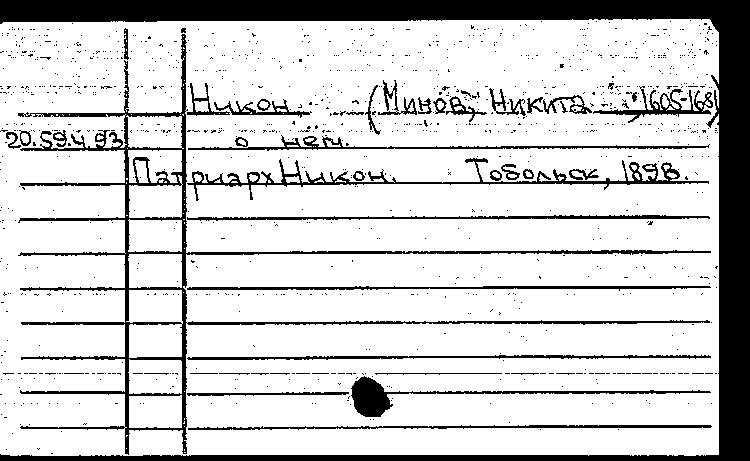 Никон. (Минов, Никита, 1605-1681)
20.59.4.93 о нем.
Патриарх Никон. Тобольск, 1898.